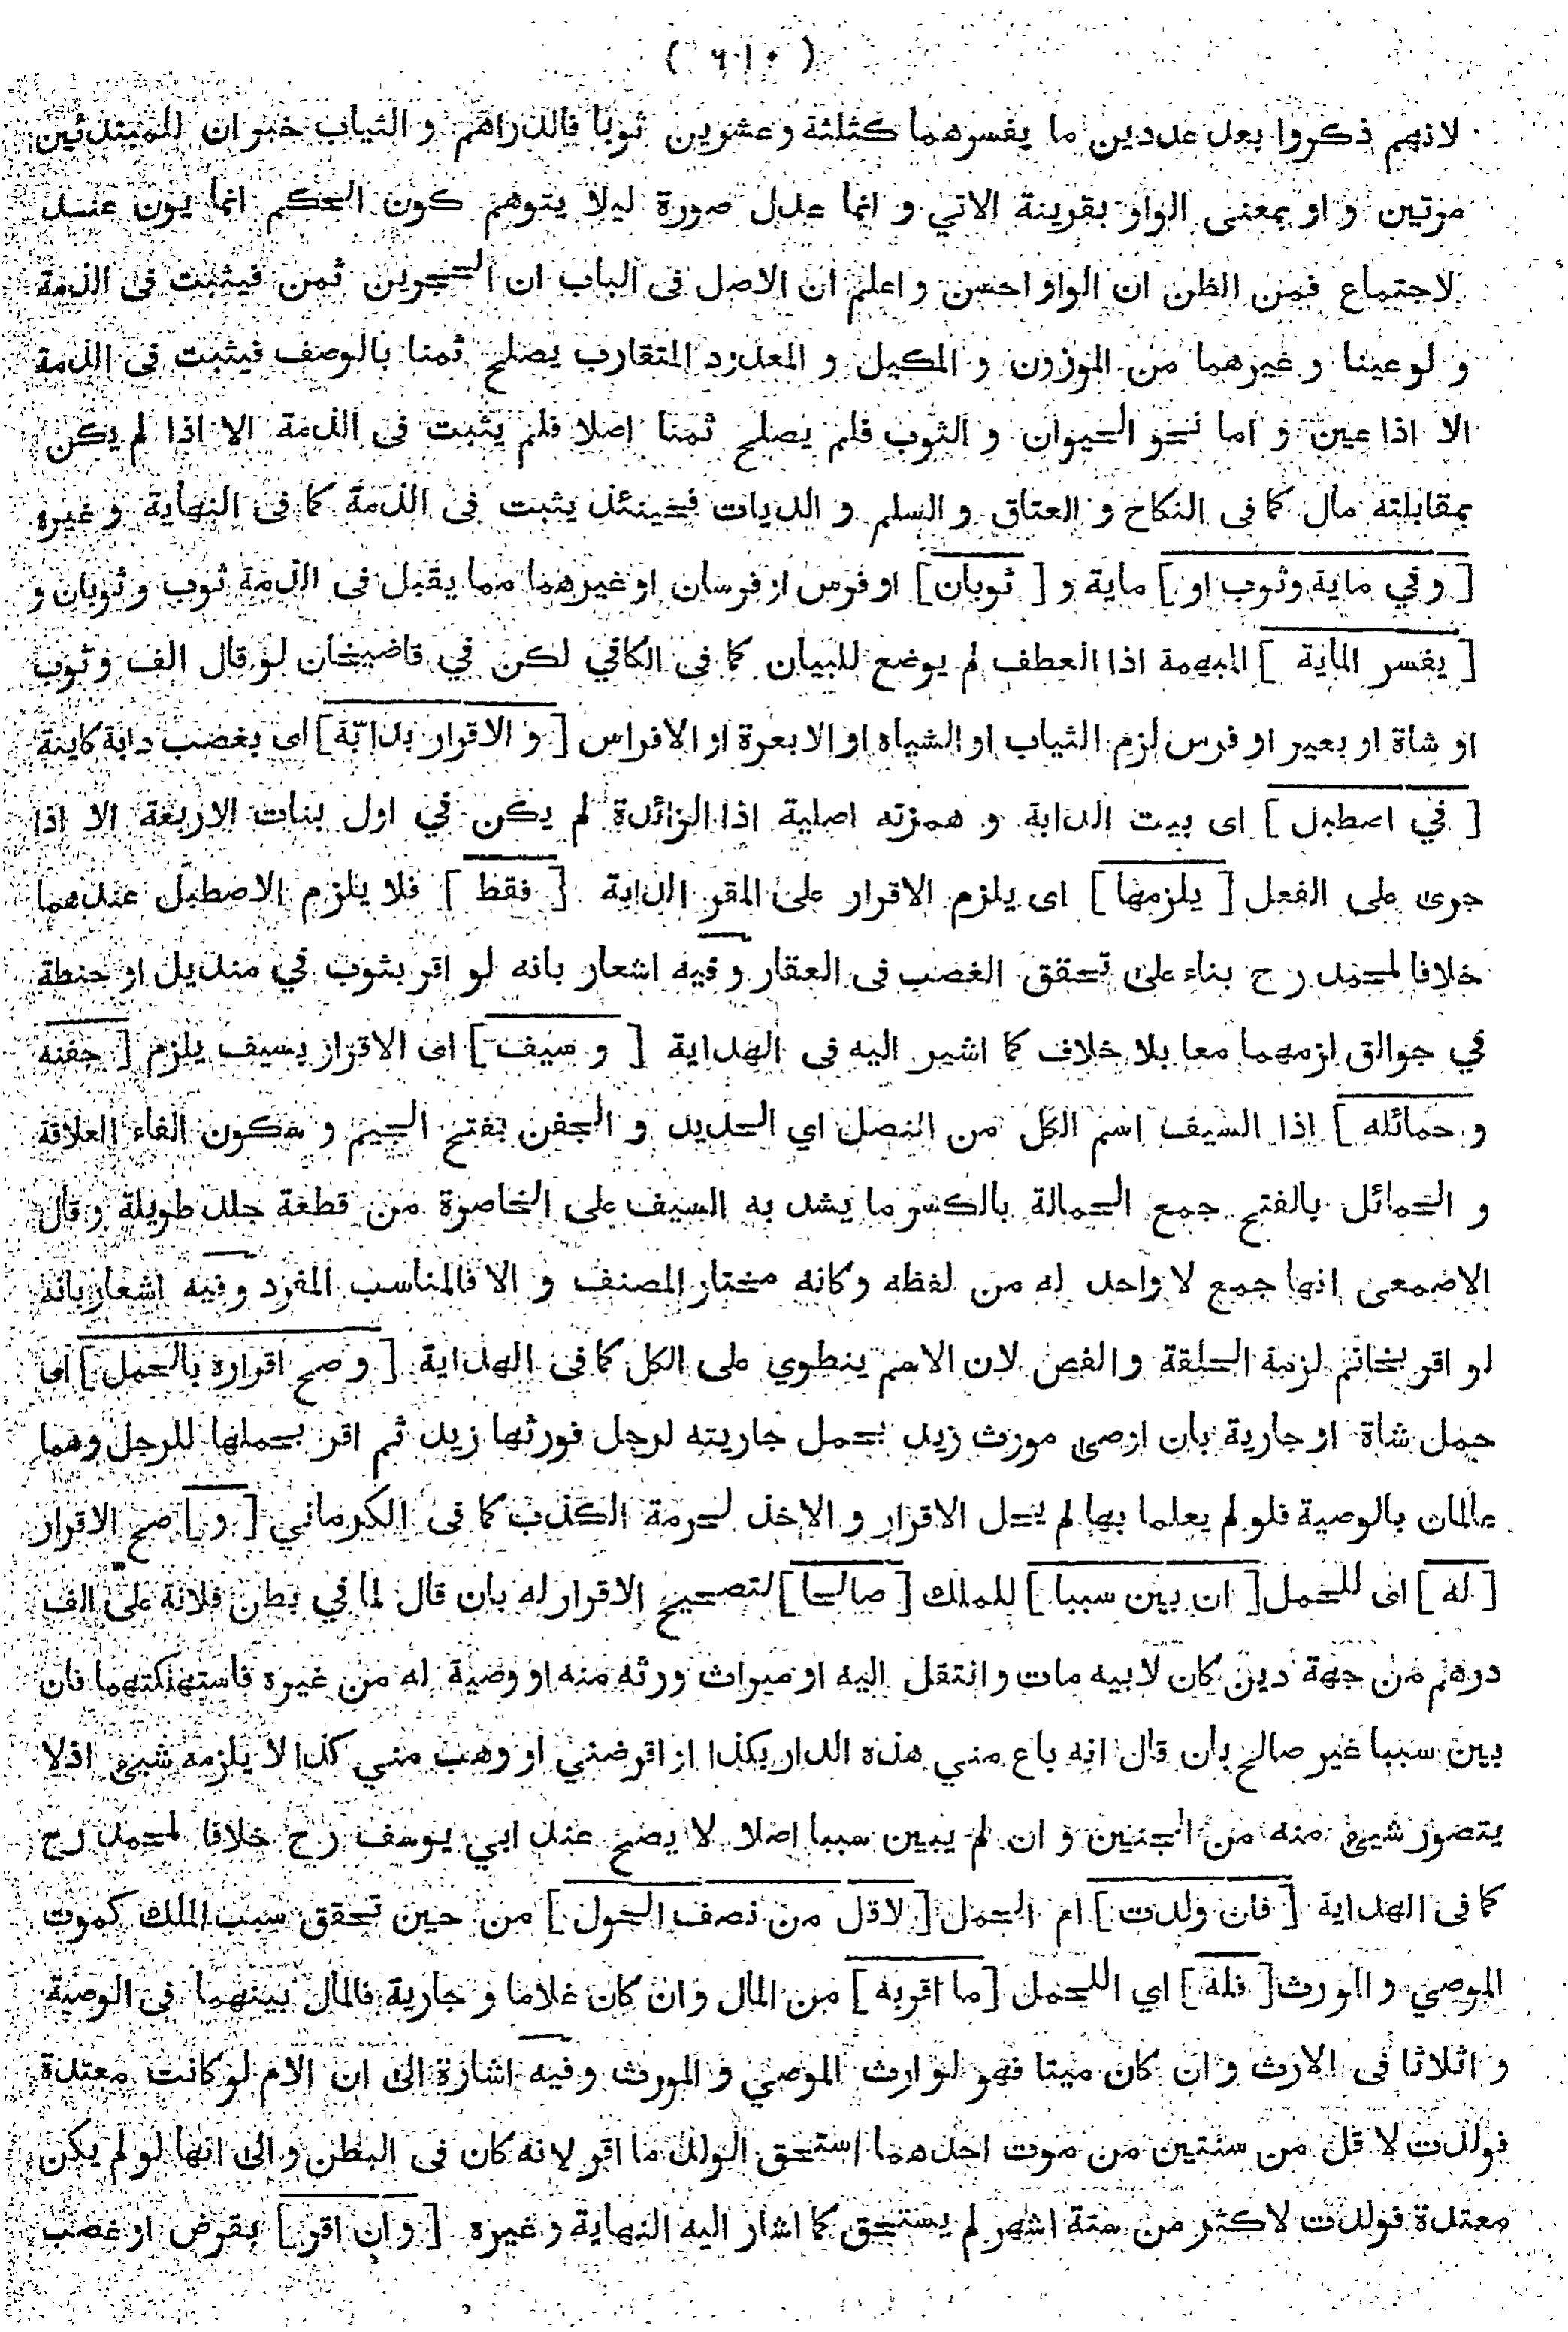 ( ٦١٠ )
لانهم ذكروا بعد عددين ما يفسرهما كثلثة وعشرين ثوبا فالدراهم و الثياب خبران للمبتدئين
مرتين و او بمعنى الواو بقرينة الاتي و انما عدل صورة ليلا يتوهم كون الحكم انما يون عند
لاجتماع فمن الظن ان الواو احسن و اعلم ان الاصل فى الباب ان الحجرين ثمن فيثبت فى الذمة
و لو عينا و غيرهما من الموزون و المكيل و المعدود المتقارب يصلح ثمنا بالوصف فيثبت فى الذمة
الا اذا عين و اما نحو الحيوان و الثوب فلم يصلح ثمنا اصلا فلم يثبت فى الذمة الا اذا لم يكن
بمقابلته مال كما فى النكاح و العتاق و السلم و الديات فحينئذ يثبت فى الذمة كما فى النهاية و غيره
[ و في ماية وثوب او ] ماية و [ ثوبان ] او فرس او فرسان او غيرهما مما يقبل فى الذمة ثوب و ثوبان و
[ يفسر الماية ] المبهمة اذا العطف لم يوضع للبيان كما فى الكافي لكن في قاضيخان لو قال الف و ثوب
او شاة او بعير او فرس لزم الثياب او الشياه او الابعرة او الافراس [ و الاقرار بدابّة ] اى بغصب دابة كاينة
[ في اصطبل ] اى بيت الدابة و همزته اصلية اذا الزائدة لم يكن في اول بنات الاربعة الا اذا
جرى على الفعل [ يلزمها ] اى يلزم الاقرار على المقر الدابة [ فقط ] فلا يلزم الاصطبل عندهما
خلافا لمحمد رح بناء على تحقق الغصب فى العقار و فيه اشعار بانه لو اقر بثوب في منديل او حنطة
في جوالق لزمهما معا بلا خلاف كما اشير اليه فى الهداية [ و سيف ] اى الاقرار بسيف يلزم [ جفنه
و حمائله ] اذا السيف اسم الكل من النصل اي الحديد و الجفن بفتح الجيم و سكون الفاء العلاقة
و الحمائل بالفتح جمع الحمالة بالكسر ما يشد به السيف على الخاصرة من قطعة جلد طويلة و قال
الاصمعى انها جمع لا واحد له من لفظه وكانه مختار المصنف و الا فالمناسب المفرد و فيه اشعار بانه
لو اقر بخاتم لزمه الحلقة و الفص لان الاسم ينطوي على الكل كما فى الهداية [ و صح اقراره بالحمل ] اى
حمل شاة او جارية بان اوصى مورث زيد بحمل جاريته لرجل فورثها زيد ثم اقر بحملها للرجل وهما
عالمان بالوصية فلو لم يعلما بها لم يحل الاقرار و الاخذ لحرمة الكذب كما فى الكرماني [ و ] صح الاقرار
[ له ] اى للحمل [ ان بين سببا ] للملك [ صالحا ] لتصحيح الاقرار له بان قال لما في بطن فلانة علىّ الف
درهم من جهة دين كان لابيه مات و انتقل اليه او ميراث ورثه منه او وصية له من غيره فاستهلكتهما فان
بين سببا غير صالح بان قال انه باع مني هذه الدار بكذا او اقرضني او وهب مني كذا لا يلزمه شيئ اذلا
يتصور شيئ منه من الجنين و ان لم يبين سببا اصلا لا يصح عند ابي يوسف رح خلافا لمحمد رح
كما فى الهداية [ فان ولدت ] ام الحمل [ لاقل من نصف الحول ] من حين تحقق سبب الملك كموت
الموصي و المورث [ فله ] اي اللحمل [ ما اقربه ] من المال وان كان غلاما و جارية فالمال بينهما فى الوصية
و اثلاثا فى الارث و ان كان ميتا فهو لوارث الموصي و المورث و فيه اشارة الى ان الام لو كانت معتدة
فولدت لا قل من سنتين من موت احدهما استحق الولد ما اقر لانه كان فى البطن و الى انها لو لم يكن
معتدة فولدت لاكثر من ستة اشهر لم يستحق كما اشار اليه النهاية و غيره [ و ان اقر ] بقرض او غصب